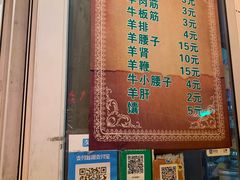 羊肉筋 3元
牛板筋 3元
羊排 4元
羊腰子 15元
羊肾 10元
羊鞭 15元
牛小腰子 4元
羊肝 2元
馕 5元